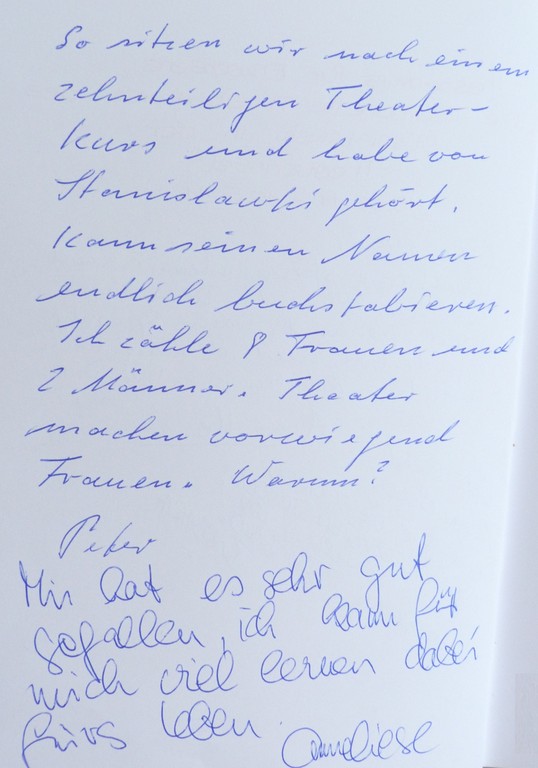 So sitzen wir nach einem
zehnteiligen Theater-
Kurs und habe von
Stanislawski gehört.
Kann seinen Namen
endlich buchstabieren.
Ich zähle 8 Frauen und
2 Männer. Theater
machen vorwiegend
Frauen. Warum?
Peter
Mir hat es sehr gut
gefallen, ich kann für
mich viel lernen dabei
fürs Leben.
Anneliese